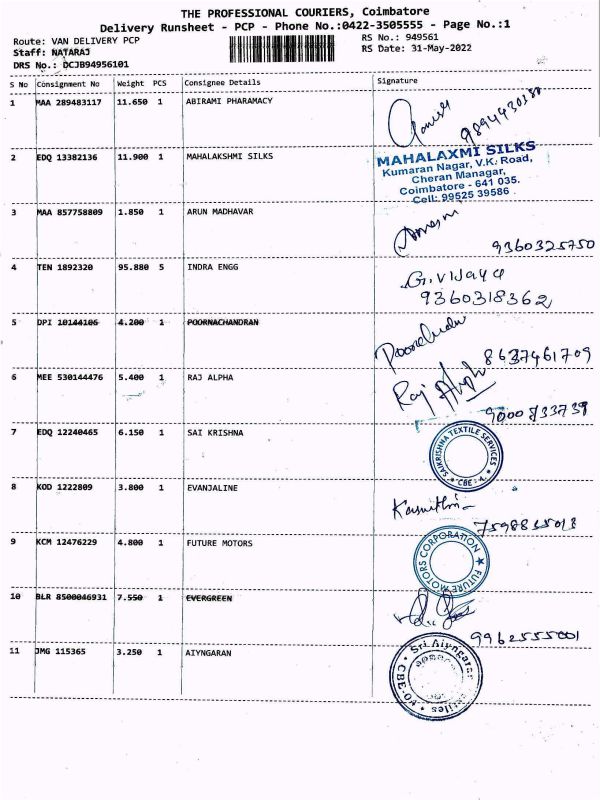 THE PROFESSIONAL COURIERS, Coimbatore
Delivery Runsheet - PCP - Phone No.:0422-3505555 - Page No.:1
Route: VAN DELIVERY PCP
RS No.: 949561
Staff: NATARAJ
RS Date: 31-May-2022
DRS No.: DCJB94956101
S No Consignment No Weight PCS Consignee Details Signature
1 MAA 289483117 11.650 1 ABIRAMI PHARAMACY
2 EDQ 13382136 11.900 1 MAHALAKSHMI SILKS
MAHALAXMI SILKS
Kumaran Nagar, V.K. Road,
Cheran Managar,
Coimbatore - 641 035.
Cell: 99525 39586
3 MAA 857758809 1.850 1 ARUN MADHAVAR
9360325750
4 TEN 1892320 95.880 5 INDRA ENGG
G.Vijaya
9360318362
5 DPI 10144106 4.200 1 POORNACHANDRAN
8637461709
6 MEE 530144476 5.400 1 RAJ ALPHA
Raj Alpha
7 EDQ 12240465 6.150 1 SAI KRISHNA
SAIKRISHNA TEXTILE SERVICES
CBE - 4.
8 KOD 1222809 3.800 1 EVANJALINE
9 KCM 12476229 4.800 1 FUTURE MOTORS
FUTURE MOTORS CORPORATION
10 BLR 8500046931 7.550 1 EVERGREEN
9962555001
11 JMG 115365 3.250 1 AIYNGARAN
Sri Aiyngaran